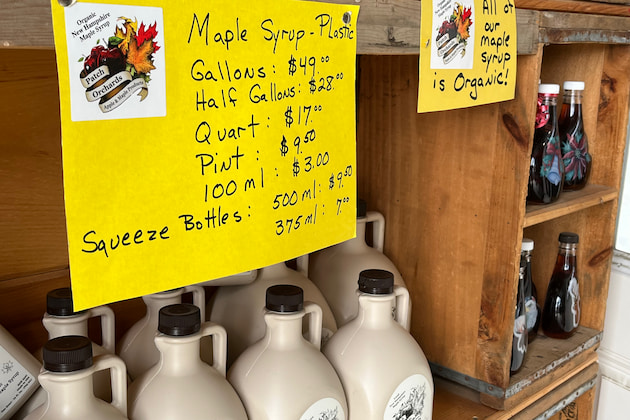 Organic
New Hampshire
Maple Syrup
Patch
Orchards
Apple & Maple Products
Maple Syrup - Plastic
Gallons: $49.00
Half Gallons: $28.00
Quart: $17.00
Pint: $9.50
100 ml: $3.00
Squeeze Bottles: 500 ml: $9.50
375 ml: 7.00
All of
our
maple
syrup
is Organic!